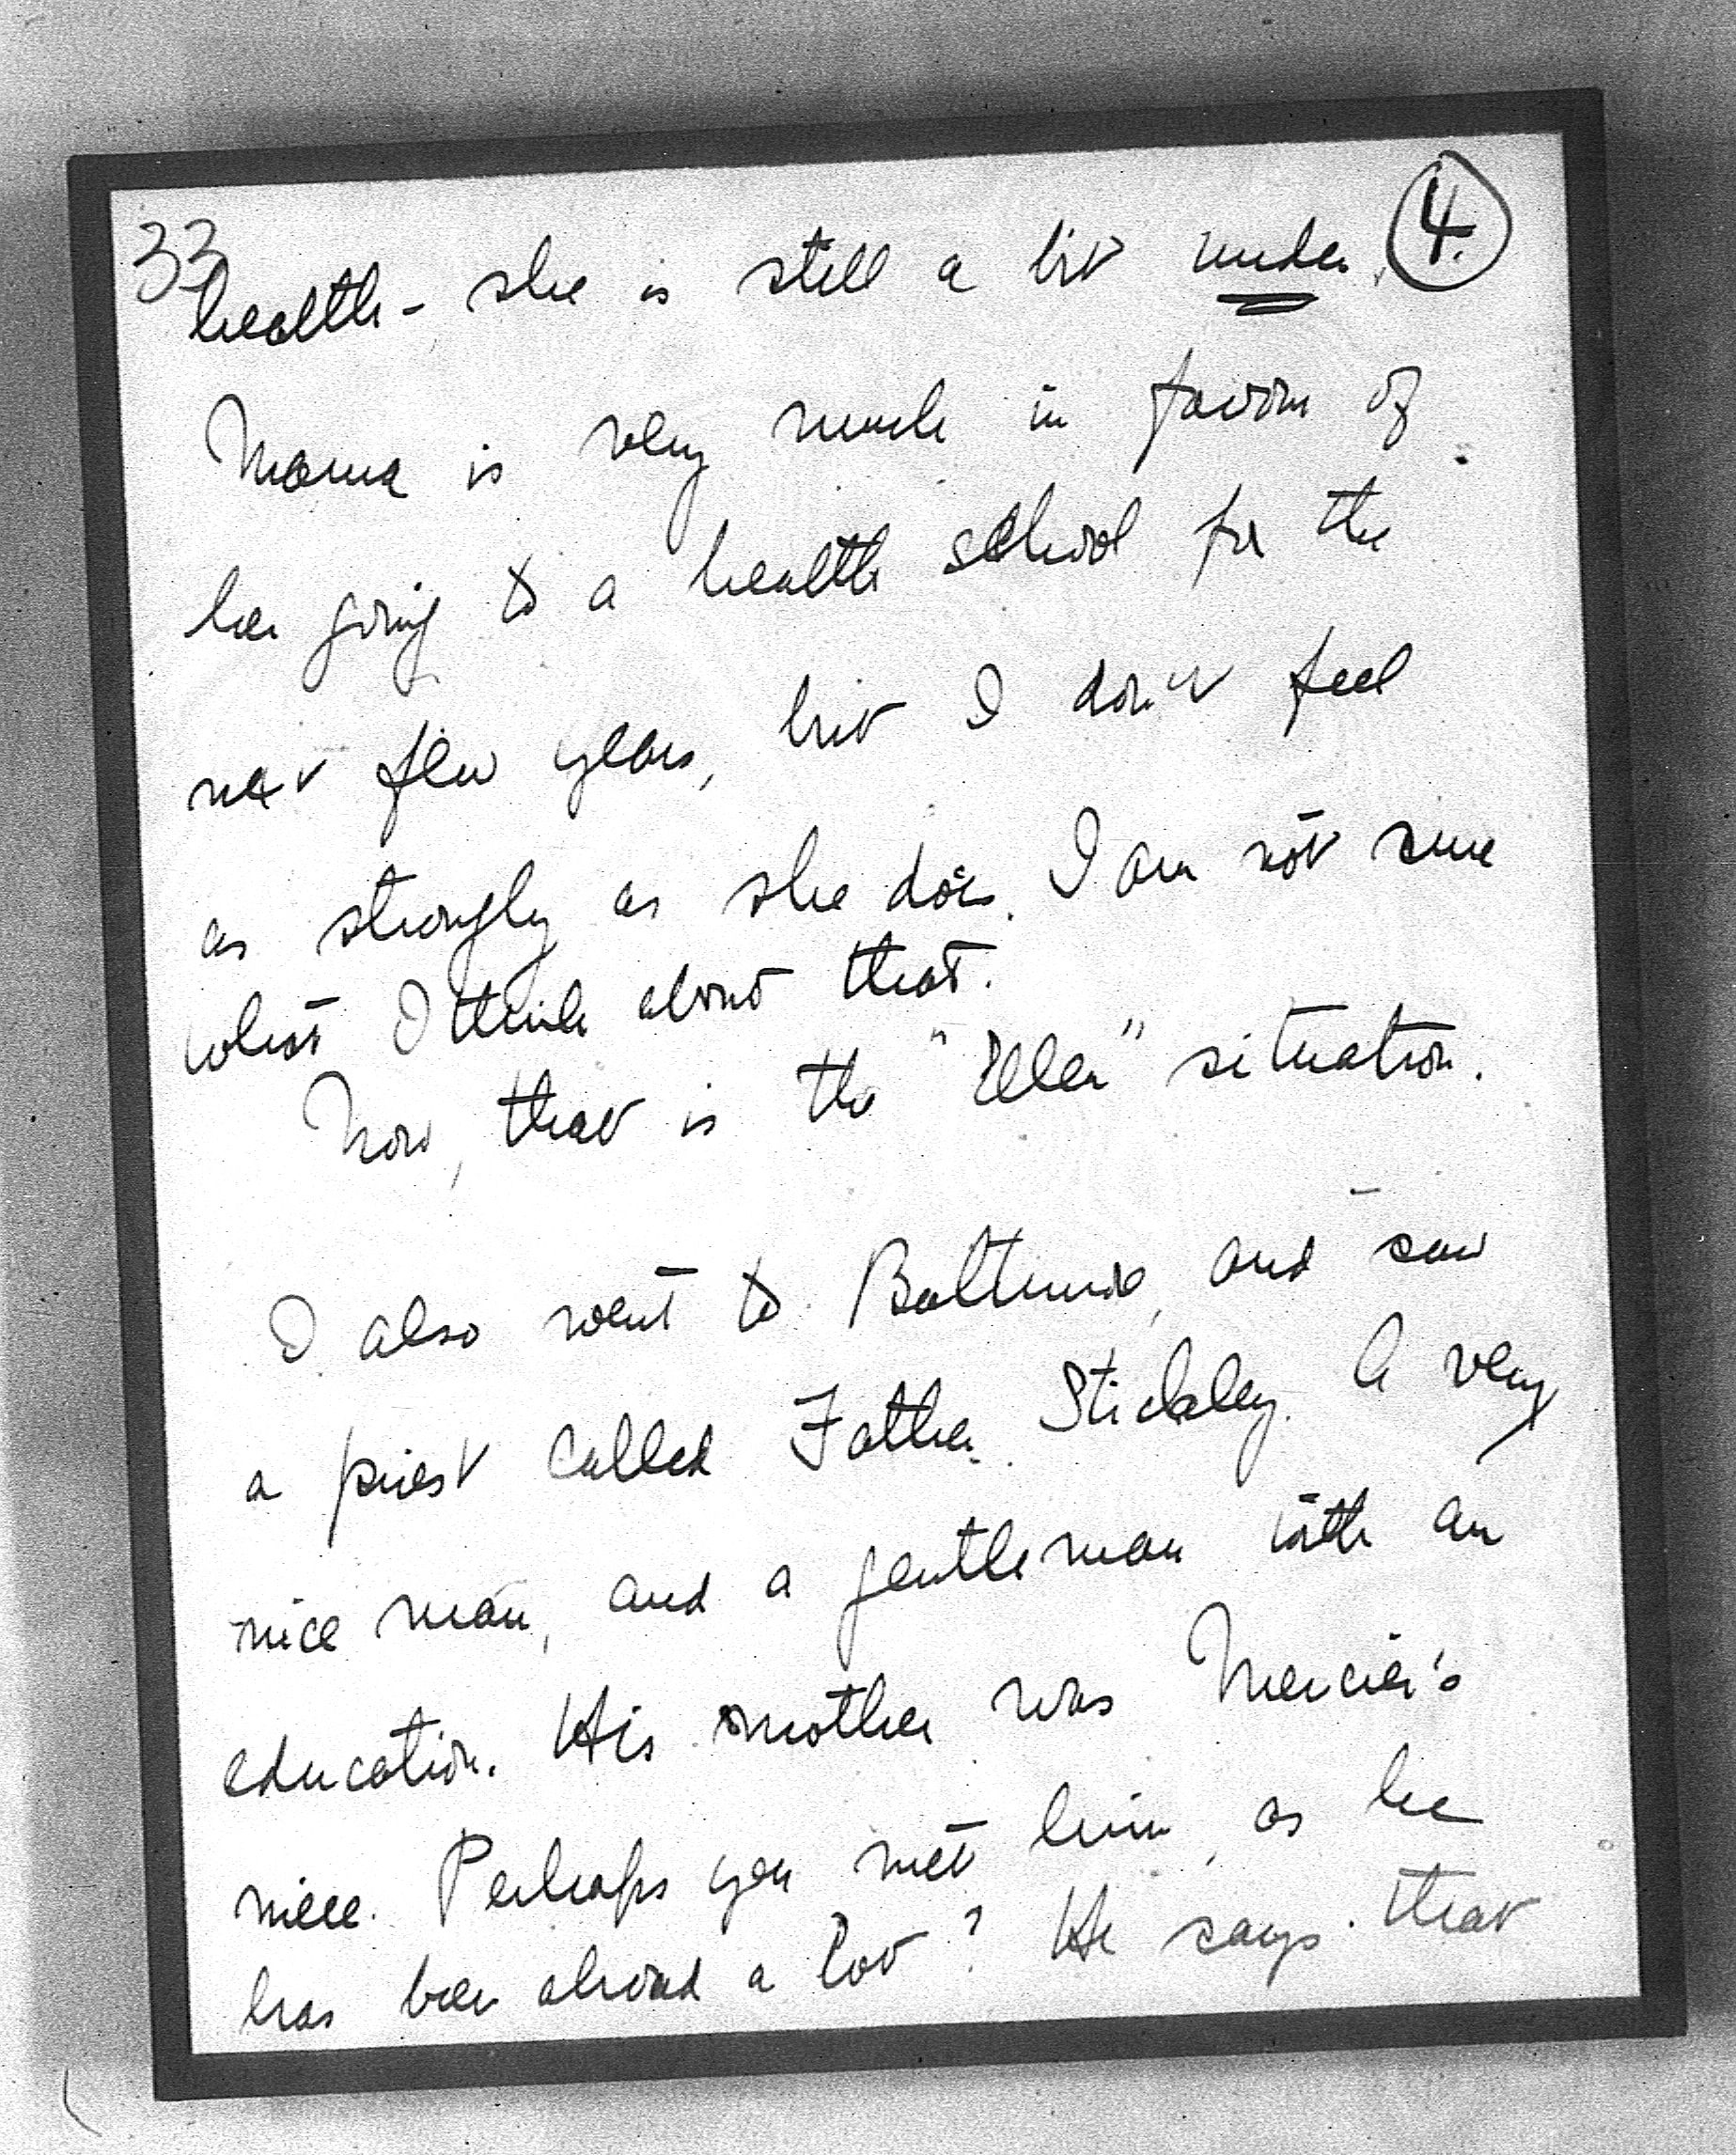 33
4.
health - she is still a bit under.
Mama is very much in favour of
her going to a health school for the
next few years, but I don't feel
as strongly as she does. I am not sure
what I think about that.
Now, that is the "Ella" situation.
I also went to Baltimore, and saw
a priest called Father Stickley. A very
nice man, and a gentleman with an
education. His mother was Mercier's
niece. Perhaps you met him, as he
has been abroad a lot? He says that